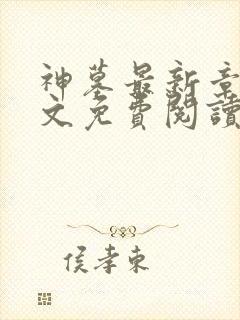 神墓最新章
文免費閱讀
侯孝東